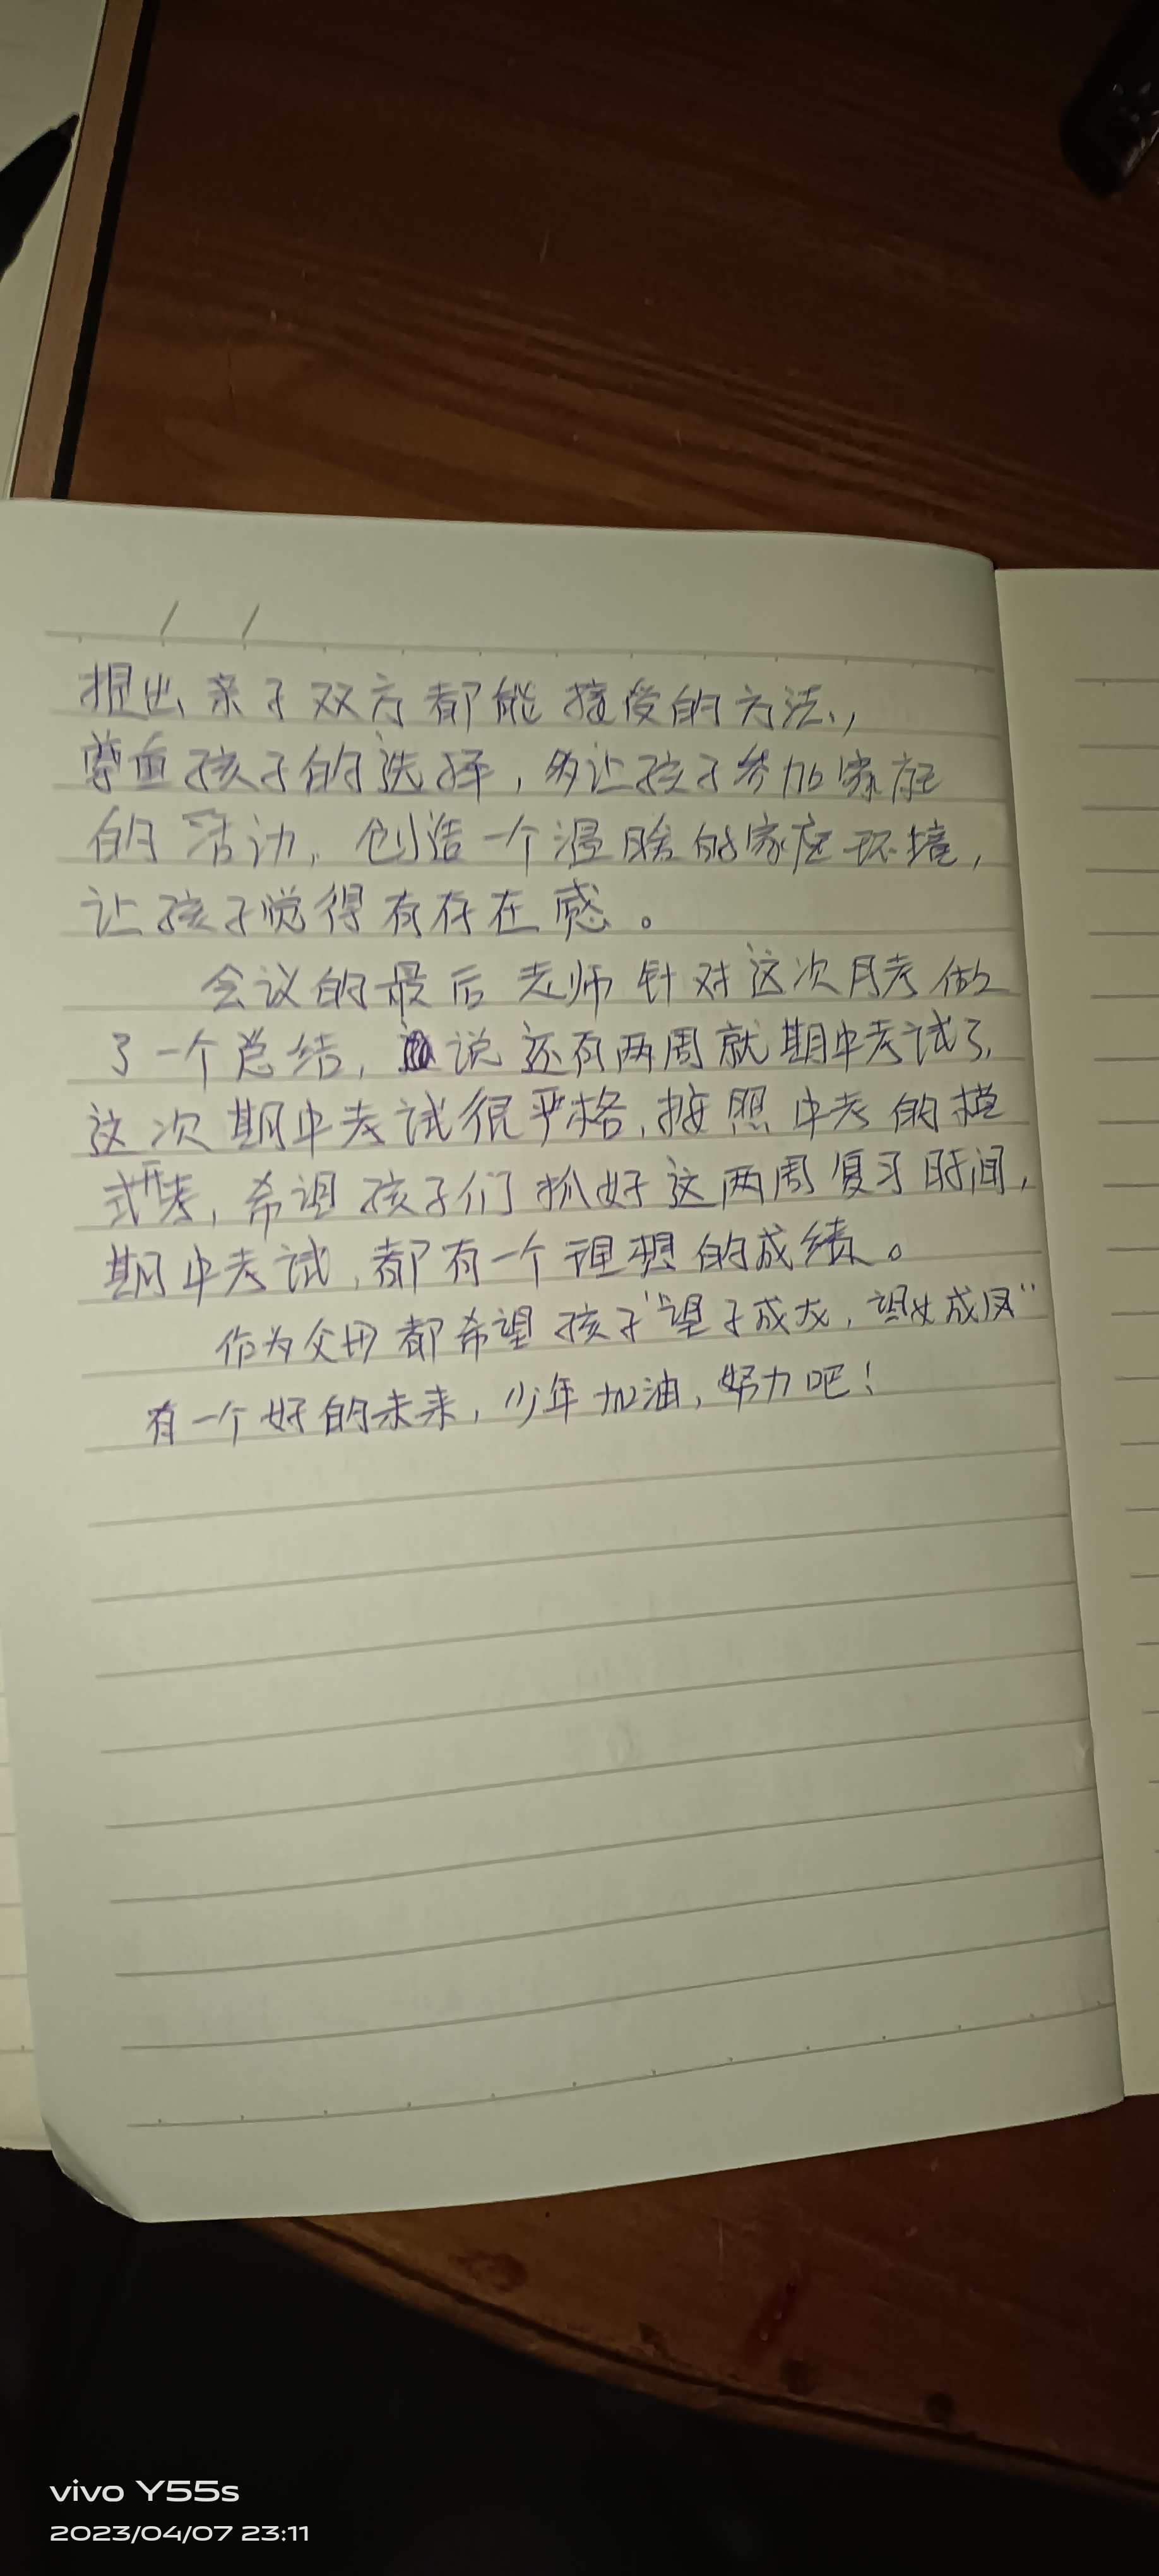 提出亲子双方都能接受的方法,
尊重孩子的选择,多让孩子参加家庭
的活动,创造一个温暖的家庭环境,
让孩子觉得有存在感。
会议的最后老师针对这次月考做
了一个总结,说还有两周就期中考试了,
这次期中考试很严格,按照中考的模
式考,希望孩子们抓好这两周复习时间,
期中考试,都有一个理想的成绩。
作为父母都希望孩子“望子成龙,望女成凤”
有一个好的未来,少年加油,努力吧!
vivo Y55s
2023/04/07 23:11